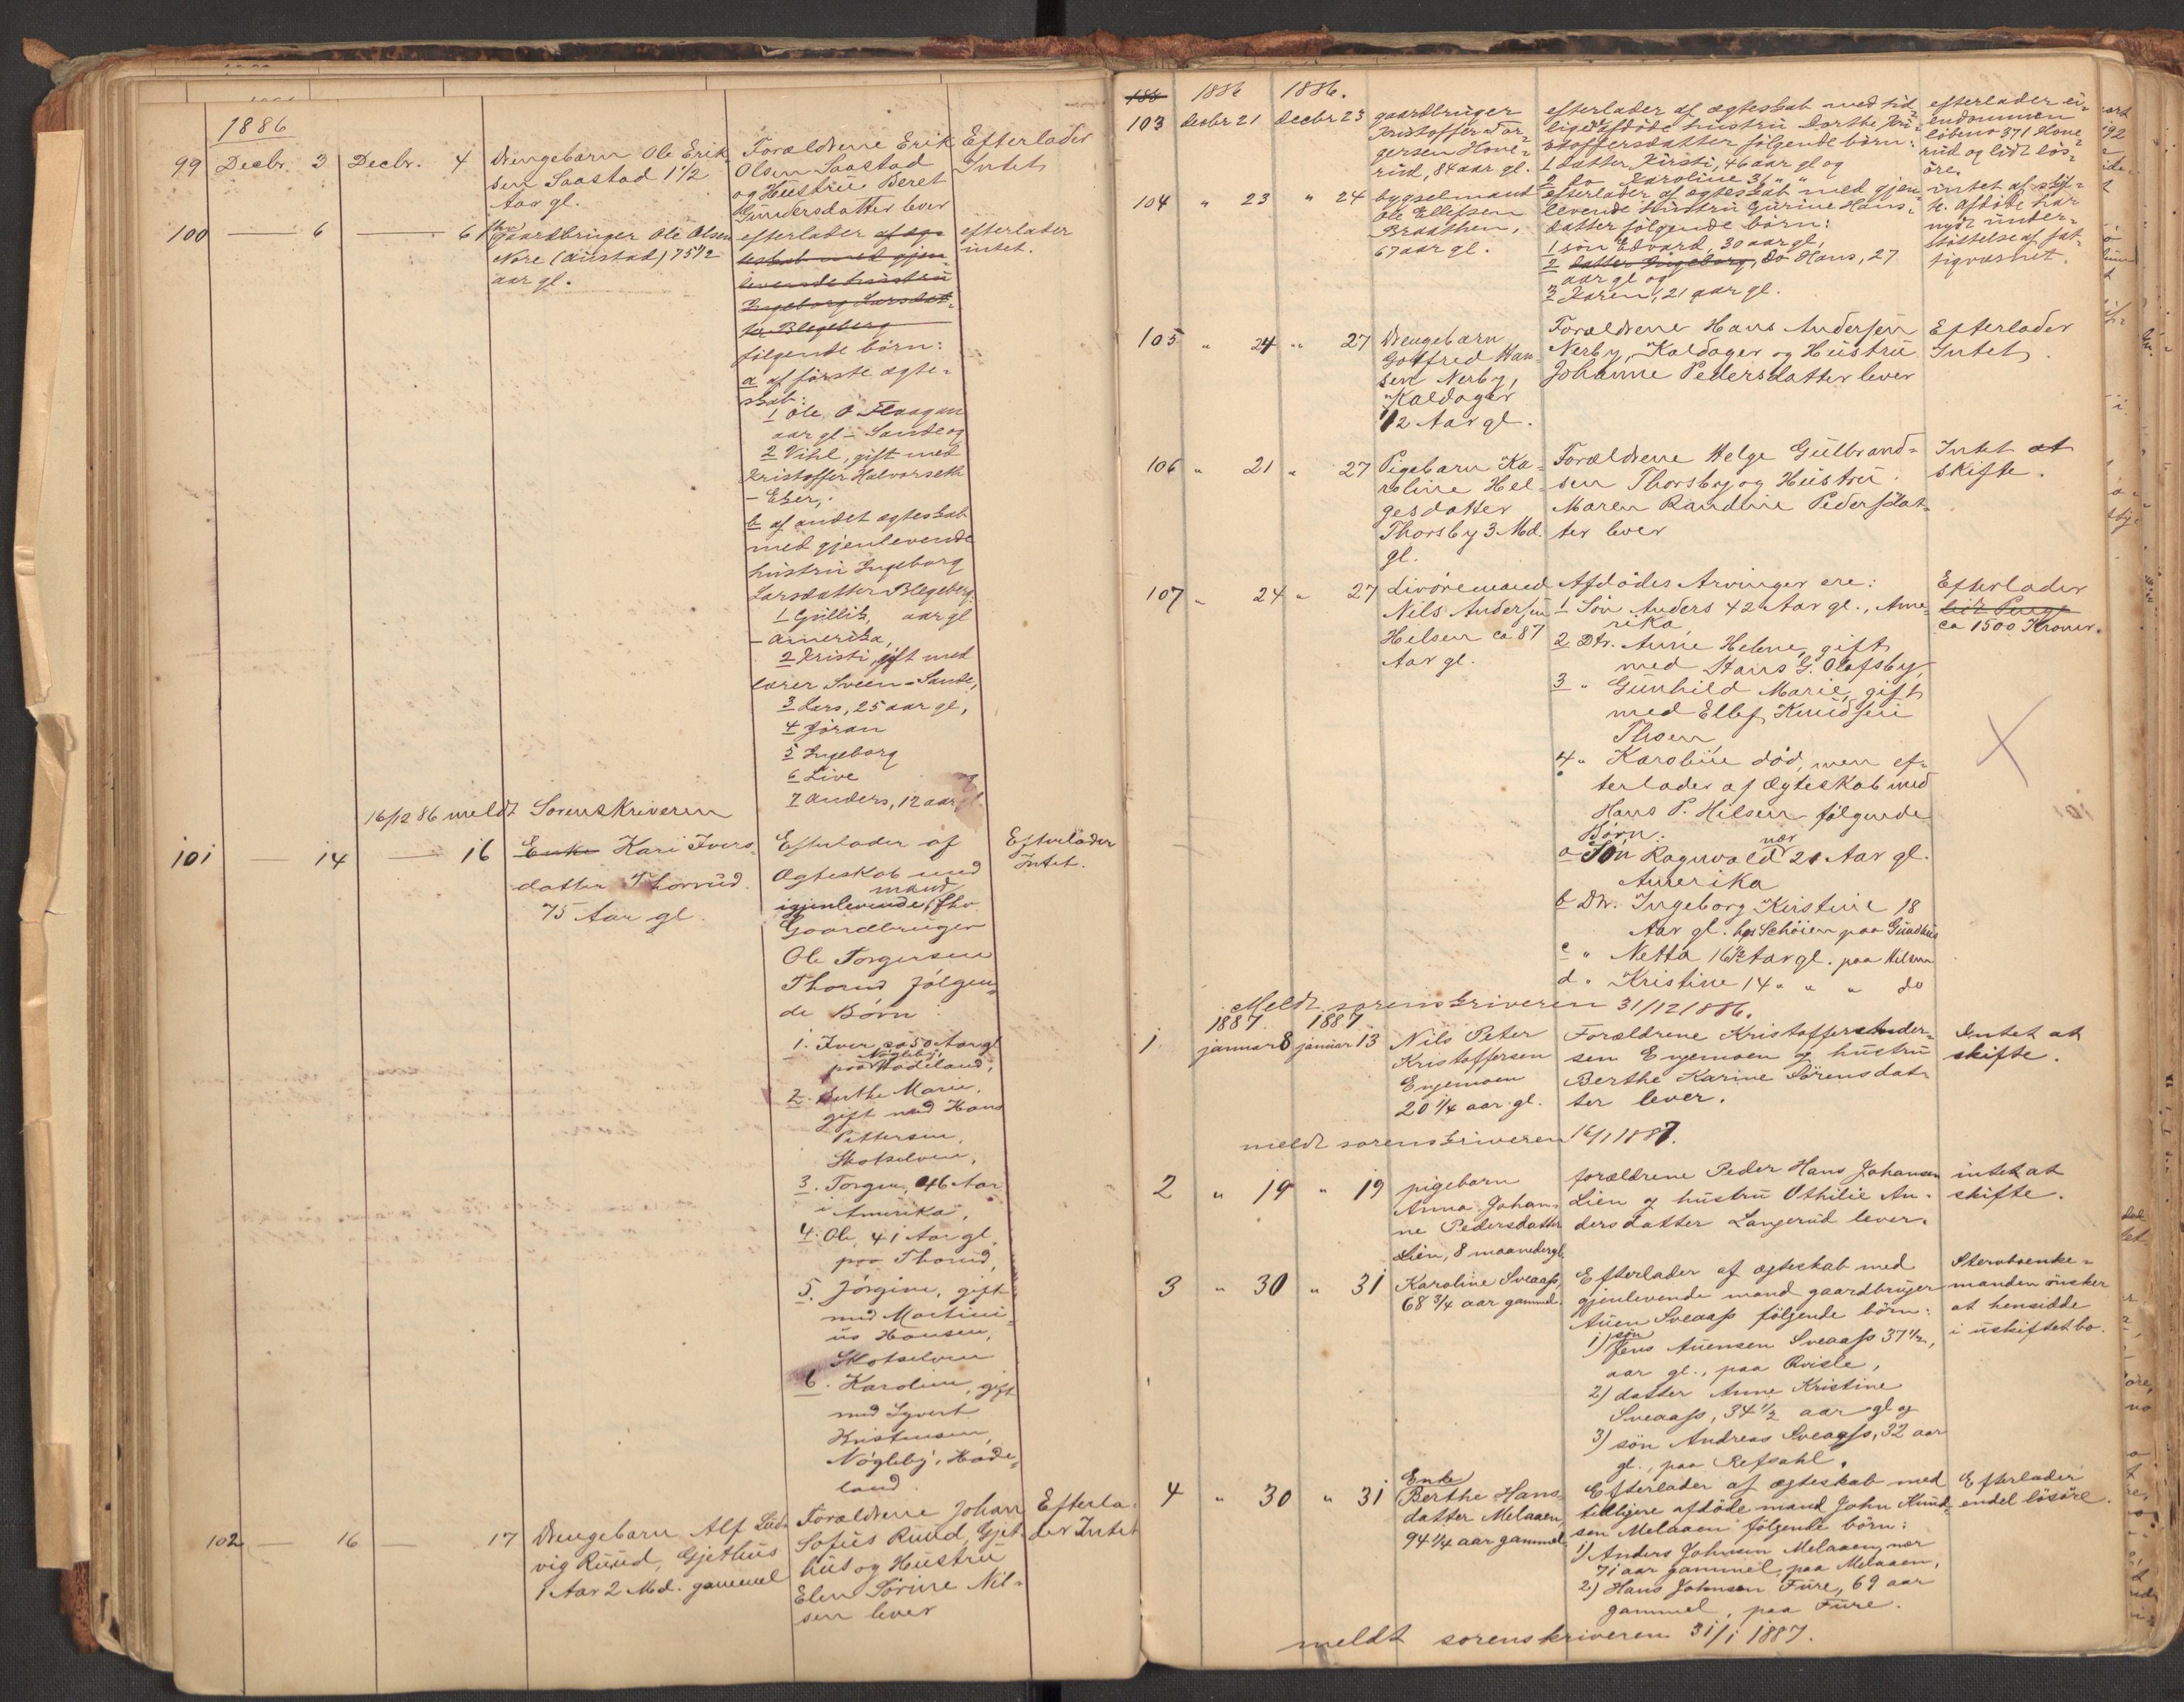 1886
99 Decbr. 3 Decbr. 4 Drengebarn Ole Erik-
sen Saastad 1 1/2
Aar gl.
Forældrene Erik
Olsen Saastad
og Hustru Beret
Gundersdatter lever
Efterlader
Intet
100 — 6 — 6 fhv
gaardbruger Ole Olsen
Nore (Austad) 75 1/2
aar gl.
efterlader af æg-
teskab med gjen-
levende hustru
Ingeborg Larsdat-
ter Blegeberg
følgende börn:
a af förste ægte-
skab:
1 Ole O Flaagan
aar gl - Sande og
2 Vihl, gift med
Kristoffer Halvorseth
- Eker,
b af andet ægteskab
med gjenlevende
hustru Ingeborg
Larsdatter Blegeberg:
1 Gullik, aar gl
- Amerika,
2 Kristi, gift med
lærer Sveen - Sande,
3 Lars, 25 aar gl,
4 Jöran
5 Ingeborg
6 Live
7 Anders, 12 aar gl
efterlader
intet.
16/12 86 meldt Sorenskriveren
101 — 14 — 16 Enke Kari Ivers-
datter Thorrud.
75 Aar gl.
Efterlader af
Ægteskab med
mand
igjenlevende, fhv.
Gaardbruger
Ole Torgersen
Thorud følgen-
de Børn.
1. Iver, ca 50 Aar gl
Nögleby,
paa Hadeland,
2. Berthe Marie,
gift med Hans
Pettersen,
Skotselven,
3. Torger, 46 Aar
i Amerika,
4. Ole, 41 Aar gl.
paa Thorud,
5. Jörgine, gift
med Martini-
us Hansen,
Skotselven
6. Karoline, gift
med Syvert
Kristensen,
Nögleby, Hade-
land.
Efterlader
Intet.
102 — 16 — 17 Drengebarn Alf Lud-
vig Ruud, Gjethus
1 Aar 2 Md. gammel
Forældrene Johan
Sofus Ruud, Gjet-
hus og Hustru
Elen Sörine Nil-
sen lever
Efterla-
der Intet
188 1886 1886.
103 decbr 21 decbr 23 gaardbruger
Kristoffer Tor-
gersen Hove-
rud, 84 aar gl.
efterlader af ægteskab med tid-
ligere afdöde hustru Dorthe Kri-
stoffersdatter følgende börn:
1 datter Kirsti, 46 aar gl og
2 do Karoline 36 " "
efterlader ei-
endommen
löbeno 371 Hove-
rud og lidt lös-
öre.
104 " 23 " 24 bygselmand
Ole Ellefsen
Braathen,
67 aar gl.
efterlader af ægteskab med gjen-
levende hustru Gurine Hans-
datter følgende börn:
1 sön Edvard, 30 aar gl,
2 datter Ingeborg, do Hans, 27
aar gl og
3 Karen, 21 aar gl.
intet at skif-
te. afdöde har
nydt under-
støttelse af fat-
tigvæsnet.
105 " 24 " 27 Drengebarn
Gotfred Han-
sen Nerby,
Kaldager
1/2 Aar gl.
Forældrene Hans Andersen
Nerby, Kaldager og Hustru
Johanne Pedersdatter lever
Efterlader
Intet.
106 " 21 " 27 Pigebarn Ka-
roline Hel-
gesdatter
Thorsby 3 Md.
gl.
Forældrene Helge Gulbrand-
sen Thorsby og Hustru
Maren Randine Pedersdat-
ter lever
Intet at
skifte.
107 " 24 " 27 Livöremand
Nils Andersen
Hilsen ca 87
Aar gl.
Afdødes Arvinger ere:
1 Søn Anders 42 Aar gl., Ame-
rika
2 Dtr. Anne Helene, gift
med Hans G. Olafsby,
3 " Gunhild Marie, gift
med Ellef Knudsen
Thoen
4 " Karoline død, men ef-
terlader af Ægteskab med
Hans P. Hilsen følgende
Børn.
a Søn Ragnvald nær 21 Aar gl.
Amerika
b Dtr. Ingeborg Kirstine 18
Aar gl. hos Schöien paa Gundhus
c " Netta 16 1/2 Aar gl. paa Hilsen
d " Kristine 14 " " " do
Efterlader
lidt Penge
ca 1500 Kroner.
Meldt sorenskriveren 31/12 1886.
1887 1887
1 januar 8 januar 13 Nils Peter
Kristoffersen
Engemoen
20 1/4 aar gl.
Forældrene Kristoffer Ander-
sen Engemoen og hustru
Berthe Karine Sörensdat-
ter lever.
Intet at
skifte.
meldt sorenskriveren 16/1 1887.
2 " 19 " 19 pigebarn
Anna Johan-
ne Pedersdatter
Lien, 8 maaneder gl.
forældrene Peder Hans Johansen
Lien og hustru Othilie An-
dersdatter Langerud lever.
intet at
skifte.
3 " 30 " 31 Karoline Sveaass,
68 3/4 aar gammel.
Efterlader af ægteskab med
gjenlevende mand gaardbruger
Auen Sveaass følgende börn:
1) sön Jens Auensen Sveaass 37 1/2,
aar gl., paa Qvisle,
2) datter Anne Kristine
Sveaass, 34 1/2 aar gl og
3) sön Andreas Sveaass, 32 aar
gl., paa Refsahl.
Stervboenke-
manden önsker
at hensidde
i uskiftet bo.
4 " 30 " 31 Enke
Berthe Hans-
datter Melaaen,
94 1/4 aar gammel.
Efterlader af ægteskab med
tidligere afdöde mand John Knud-
sen Melaaen følgende börn:
1) Anders Johnsen Melaaen, nær
71 aar gammel, paa Melaaen,
2) Hans Johnsen Fure, 69 aar
gammel, paa Fure.
Efterlader
endel lösöre.
meldt sorenskriveren 31/1 1887.